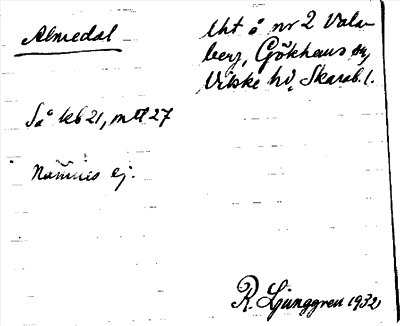 Almedal
Lht å nr 2 Vala-
berg, Gökhems sn,
Vilske hd, Skarab. l.
Så kb 21, mtl 27
Nämnes ej.
R. Ljunggren 1932